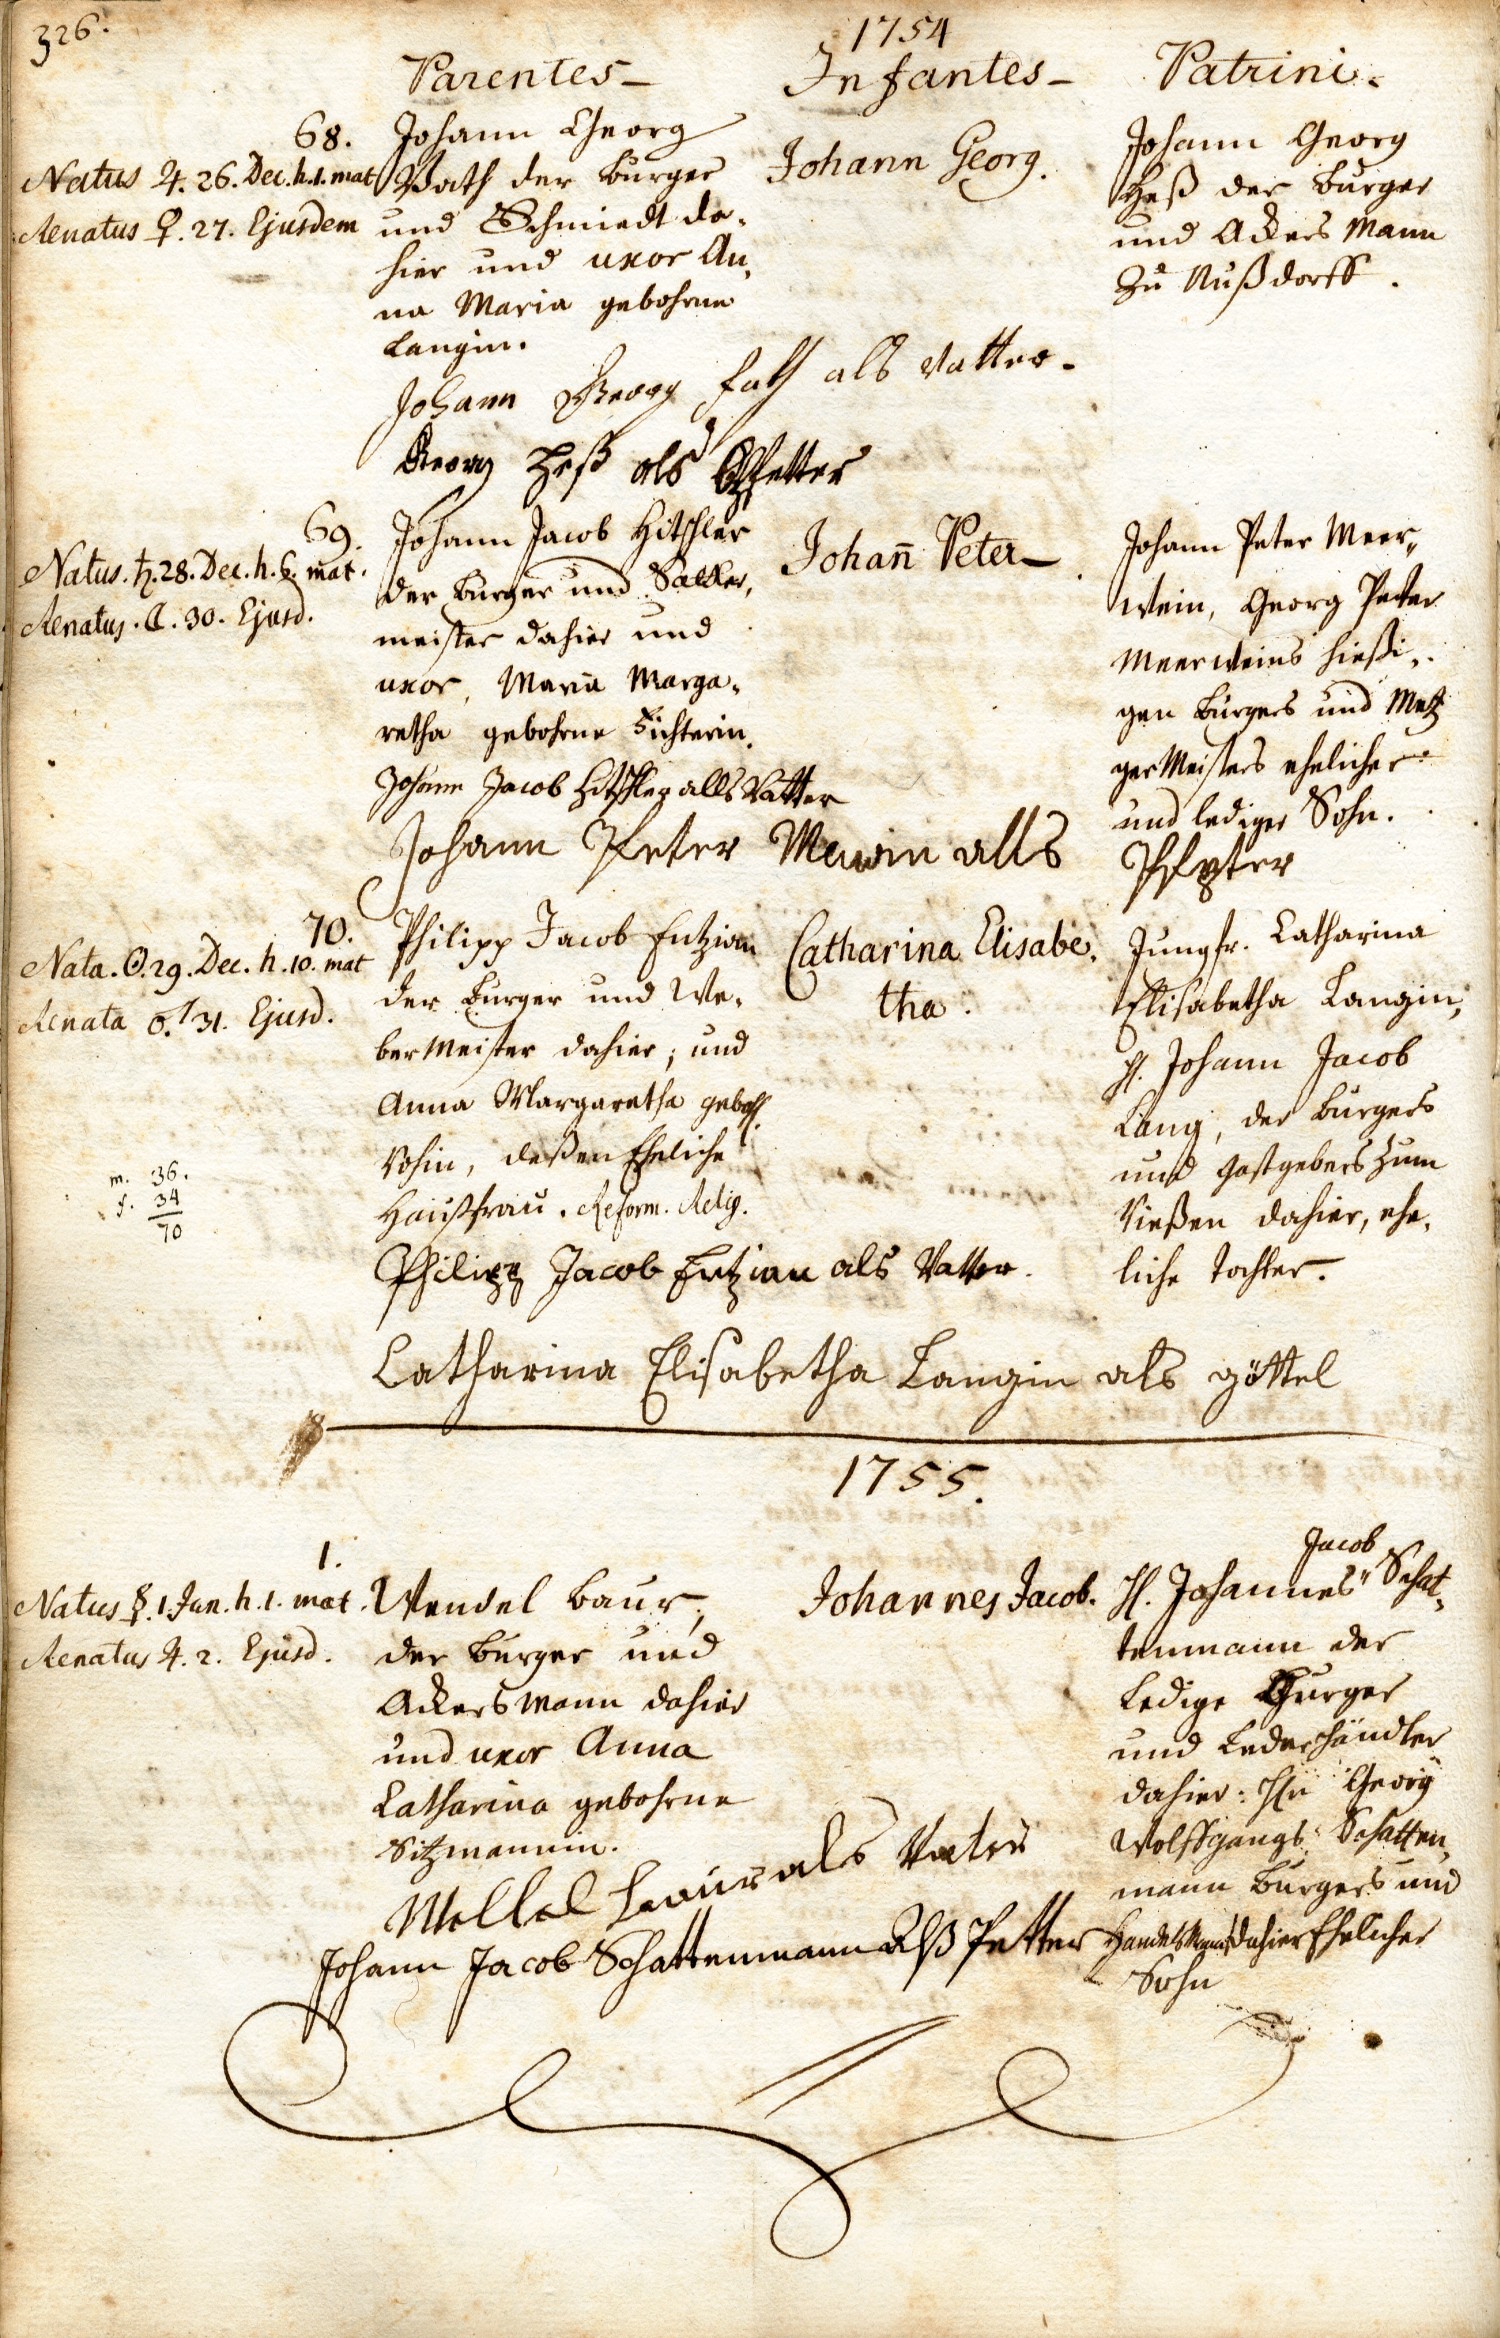 326.
1754
Parentes Infantes Patrini.
68.
Natus ♃. 26. Dec. h. 1. mat
Renatus ♀. 27. Ejusdem
Johann Georg
Vath der Burger
und Schmiedt da„
hier und uxor An„
na Maria gebohrne
Langin.
Johann Georg.
Johann Georg
Heß der Burger
und Ackers Mann
zu Nußdorff.
Johann Georg Fath als Vatter.
Georg Heß als Pfetter
69.
Natus. ♄. 28. Dec. h. 6. mat.
Renatus. ☾. 30. Ejusd.
Johann Jacob Hitschler
der Burger und
meister dahier und
uxor, Maria Marga„
retha gebohrne Lichterin.
Johañ Peter
Johann Peter Meer„
wein, Georg Peter
Meerweins hießi„
gen Burgers und Metz
ger Meisters ehelicher
und lediger Sohn.
Johann Jacob Hitschler alls Vatter
Johann Peter alls Pfetter
70.
Nata. ☉. 29. Dec. h. 10. mat
Renata ♂. 31. Ejusd.
Philipp Jacob Entzian
der Burger und We„
ber Meister dahier; und
Anna Margaretha geboh.
deßen Eheliche
Haußfrau. Reform. Relig.
Catharina Elisabe„
tha.
Jungfr. Catharina
Elisabetha Langin,
H. Johann Jacob
Lang, der Burgers
und Gastgebers zum
Rießen dahier, ehe„
liche Tochter.
m. 36.
f. 34
70
Philipp Jacob Entzian als Vatter.
Catharina Elisabetha Langin als göttel
1755.
1.
Natus ☿. 1. Jan. h. 1. mat.
Renatus ♃. 2. Ejusd.
Wendel Baur,
der Burger und
Ackers Mann dahier
und uxor Anna
Catharina gebohrne
Sitzmannin.
Johannes Jacob.
Jacob
H. Johannes" Schat„
tenmann der
Ledige Burger
und Lederhändler
dahier: Hn Georg
Wolffgangs Schatten„
mann Burgers und
Handels Manns dahier Ehelicher
Sohn
Baur als Vatter
Johann Jacob Schattenmann Alß Petter